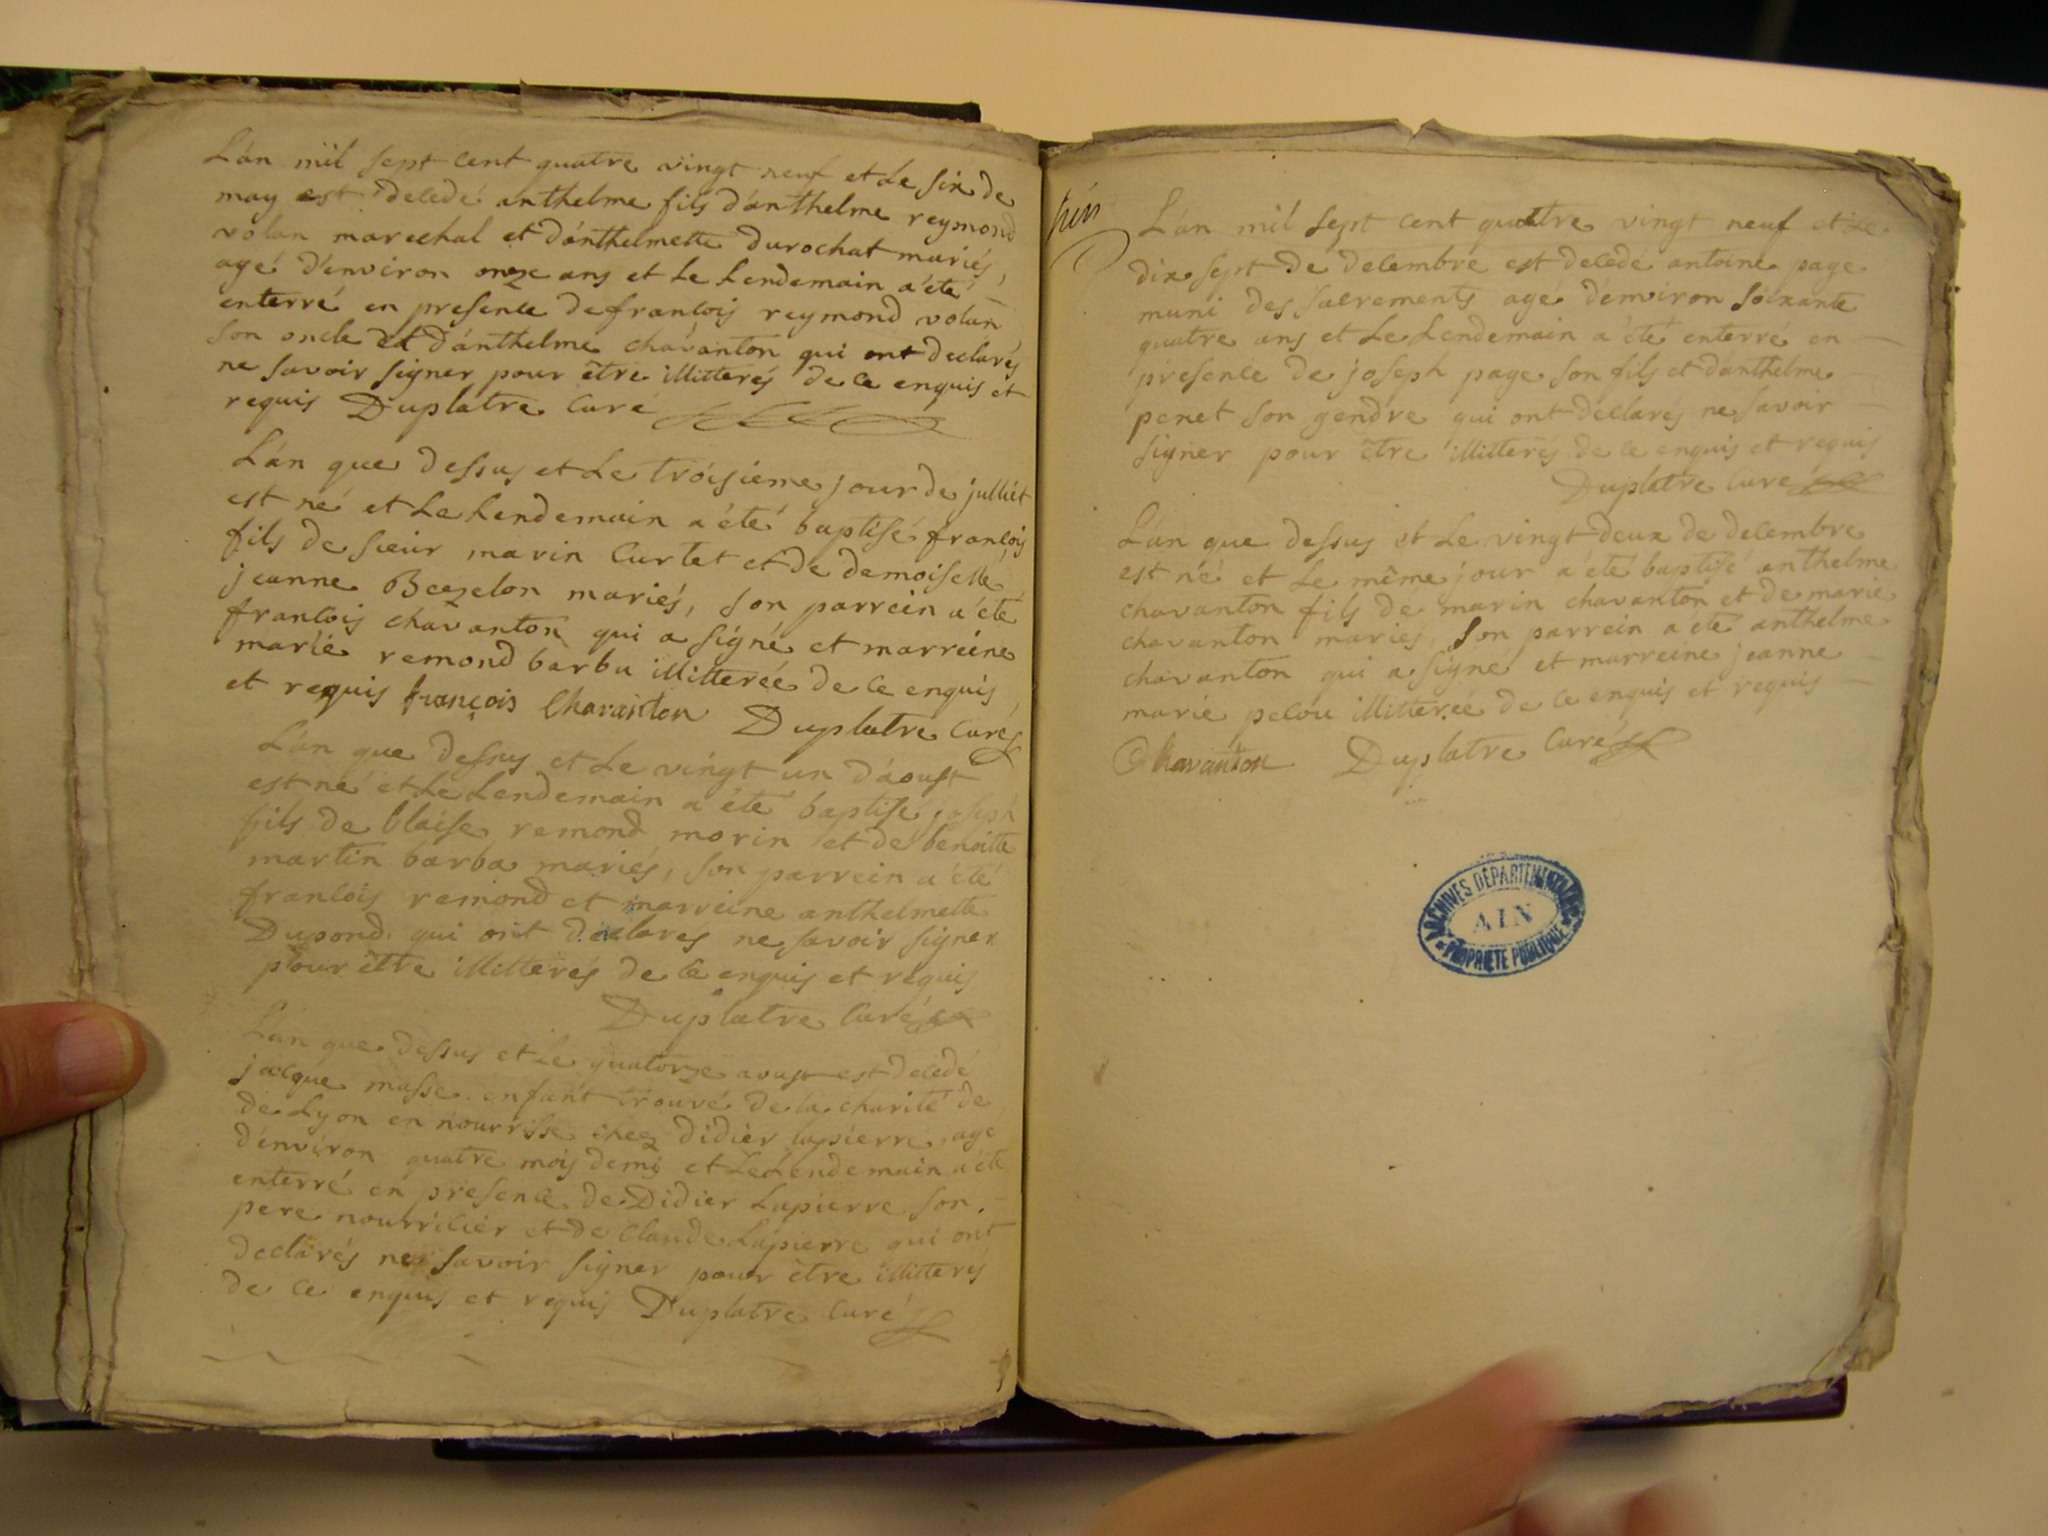 L'án mil sept cent quatre vingt neuf et le six de
may est decedé anthelme fils d'ánthelme reymond
volan marechal et d'ánthelmette durochat mariés,
agé d'environ onze ans et le lendemain a été
enterré en presence de francois reymond volan
son oncle et d'ánthelme chavanton qui ont declarés
ne savoir signer pour être illitterés de ce enquis et
requis Duplatre Curé
L'án que dessus et le troisieme jour de julliét
est né et le lendemain a été baptisé francois
fils de sieur marin Curtet et de demoiselle
jeanne mariés, son parrein a été
francois chavanton qui a signé et marreine
marie remond barbu illitterée de ce enquis
et requis françois Chavanton Duplatre Curé
L'án que dessus et le vingt un d'áoust
est né et le lendemain a été baptisé joseph
fils de blaise remond morin et de benoitte
martin barba mariés, son parrein a été
francois remond et marreine anthelmette
Dupond qui ont declarés ne savoir signer
pour être illitterés de ce enquis et requis
Duplatre Curé
L'án que dessus et le quatorze aoust est decedé
jacque masse enfant trouvé de la charité de
de Lyon en nourrisse chez didier lapierre agé
d'environ quatre mois demi et le lendemain a été
enterré en presence de Didier Lapierre son
pere nourricier et de Claude Lapierre qui ont
declarés ne savoir signer pour être illitterés
de ce enquis et requis Duplatre Curé
L'án mil sept cent quatre vingt neuf et le
dix sept de decembre est decedé antoine page
muni des sacrements agé d'environ soixante
quatre ans et le lendemain a été enterré en
presence de joseph page son fils et d'anthelme
penet son gendre qui ont declarés ne savoir
signer pour être illitterés de ce enquis et requis
Duplatre Curé
L'án que dessus et le vingt deux de decembre
est né et le même jour a été baptisé anthelme
chavanton fils de marin chavanton et de marie
chavanton mariés, son parrein a été anthelme
chavanton qui a signé et marreine jeanne
marie pelou illitterée de ce enquis et requis
Chavanton Duplatre Curé
ARCHIVES DÉPARTEMENTALES
AIN
PROPRIÉTÉ PUBLIQUE